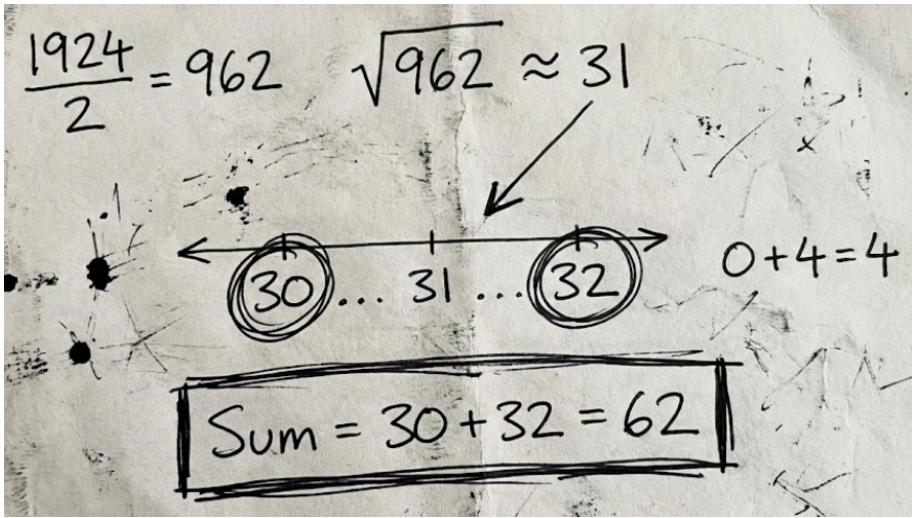 1924/2 = 962 √962 ≈ 31
30 ... 31 ... 32
0+4=4
Sum = 30+32 = 62